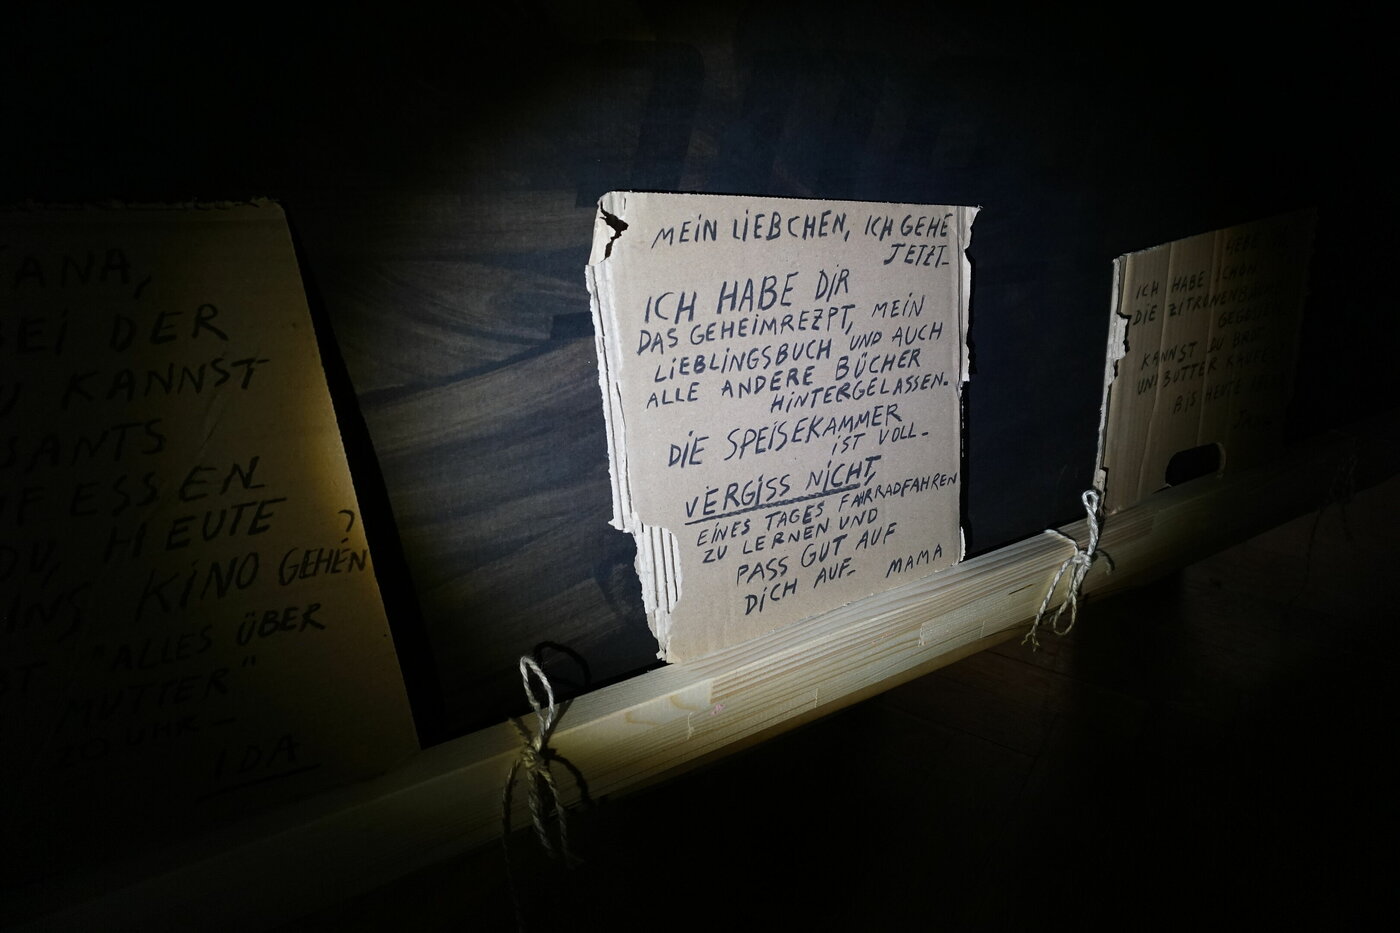 ANA,
BEI DER
DU KANNST
SANTS
AUF ESSEN
DU, HEUTE
INS KINO GEHEN?
"ALLES ÜBER
MUTTER"
20 UHR –
IDA
MEIN LIEBCHEN, ICH GEHE
JETZT_
ICH HABE DIR
DAS GEHEIMREZPT, MEIN
LIEBLINGSBUCH UND AUCH
ALLE ANDERE BÜCHER
HINTERGELASSEN.
DIE SPEISEKAMMER
IST VOLL_
VERGISS NICHT,
EINES TAGES FAHRRADFAHREN
ZU LERNEN UND
PASS GUT AUF
DICH AUF_ MAMA
ICH HABE SCHON
DIE ZITRONENBÄUME
KANNST DU BROT
UND BUTTER KAUFEN
BIS HEUTE